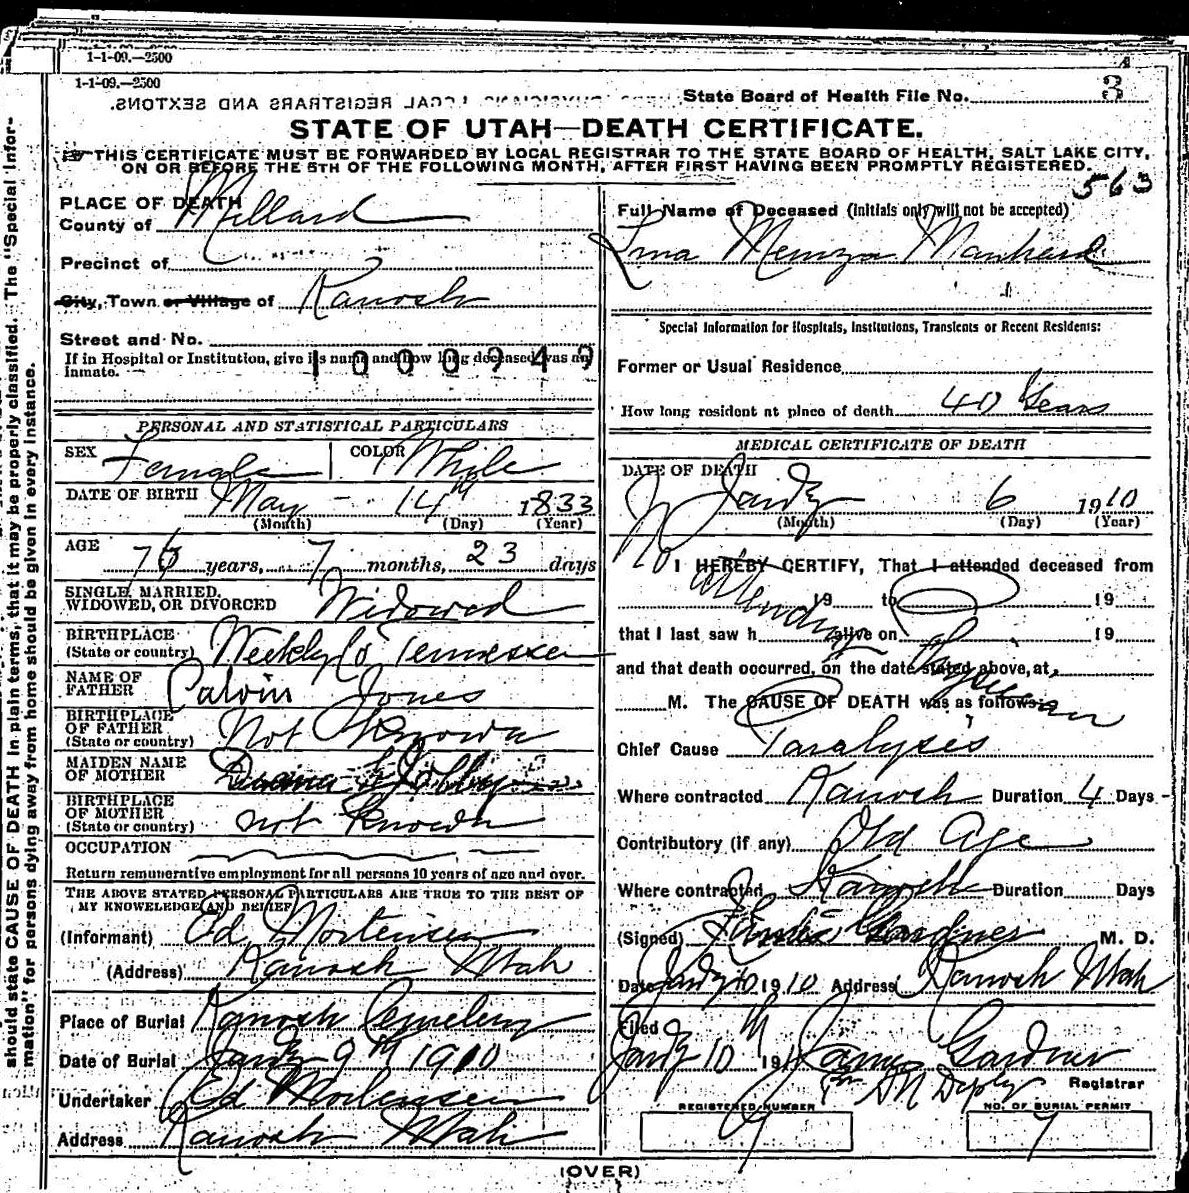 1-1-09.—2500
1-1-09.—2500
State Board of Health File No. 3
STATE OF UTAH—DEATH CERTIFICATE.
THIS CERTIFICATE MUST BE FORWARDED BY LOCAL REGISTRAR TO THE STATE BOARD OF HEALTH, SALT LAKE CITY,
ON OR BEFORE THE 5TH OF THE FOLLOWING MONTH, AFTER FIRST HAVING BEEN PROMPTLY REGISTERED.
563
PLACE OF DEATH
County of Millard
Precinct of
City, Town or Village of Kanosh
Street and No.
If in Hospital or Institution, give its name and how long deceased was an
Inmate.
1000949
PERSONAL AND STATISTICAL PARTICULARS
SEX Female COLOR White
DATE OF BIRTH May - 14th 1833
(Month) (Day) (Year)
AGE 76 years, 7 months, 23 days
SINGLE, MARRIED,
WIDOWED, OR DIVORCED Widowed
BIRTHPLACE
(State or country) Weekly Co Tennessee
NAME OF
FATHER Calvin Jones
BIRTHPLACE
OF FATHER
(State or country) Not Known
MAIDEN NAME
OF MOTHER
BIRTHPLACE
OF MOTHER
(State or country) not Known
OCCUPATION
Return remunerative employment for all persons 10 years of age and over.
THE ABOVE STATED PERSONAL PARTICULARS ARE TRUE TO THE BEST OF
MY KNOWELEDGE AND BELIEF
(Informant) Ed Mortensen
(Address) Kanosh Utah
Place of Burial Kanosh Cemetery
Date of Burial Jany 9th 1910
Undertaker Ed Mortensen
Address Kanosh Utah
Full Name of Deceased (initials only will not be accepted)
Special Information for Hospitals, Institutions, Transients or Recent Residents:
Former or Usual Residence
How long resident at place of death 40 Years
MEDICAL CERTIFICATE OF DEATH
DATE OF DEATH Jany 6 1910
(Month) (Day) (Year)
I HEREBY CERTIFY, That I attended deceased from
19 to 19
that I last saw h alive on 19
and that death occurred, on the date stated above, at
M. The CAUSE OF DEATH was as follows:
No attending Physician
Chief Cause Paralysis
Where contracted Kanosh Duration 4 Days
Contributory (if any) Old Age
Where contracted Kanosh Duration Days
(Signed) James Gardner M. D.
Date Jany 10 1910 Address Kanosh Utah
Filed
Jany 10th 191 James Gardner
Registrar
REGISTERED NUMBER
NO. OF BURIAL PERMIT
7
(OVER)
should state CAUSE OF DEATH in plain terms, that it may be properly classified. The "Special Infor-
mation" for persons dying away from home should be given in every instance.